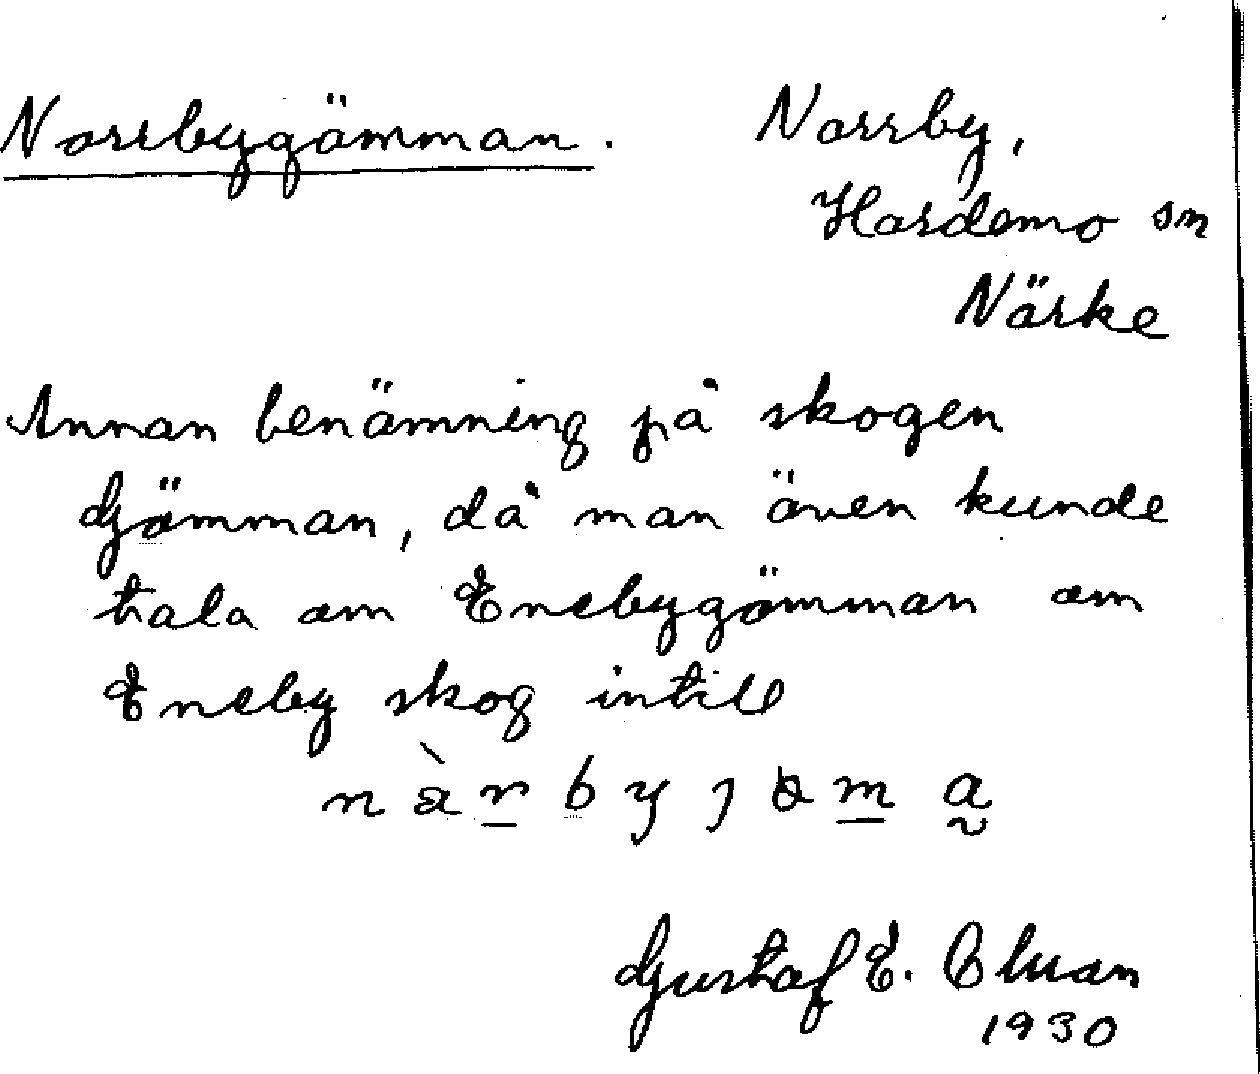 Norrbygömman. Norrby,
Hardemo sn
Närke
Annan benämning på skogen
Gömman, då man även kunde
tala om Enebygömman om
Eneby skog intill
Gustaf E.
1930